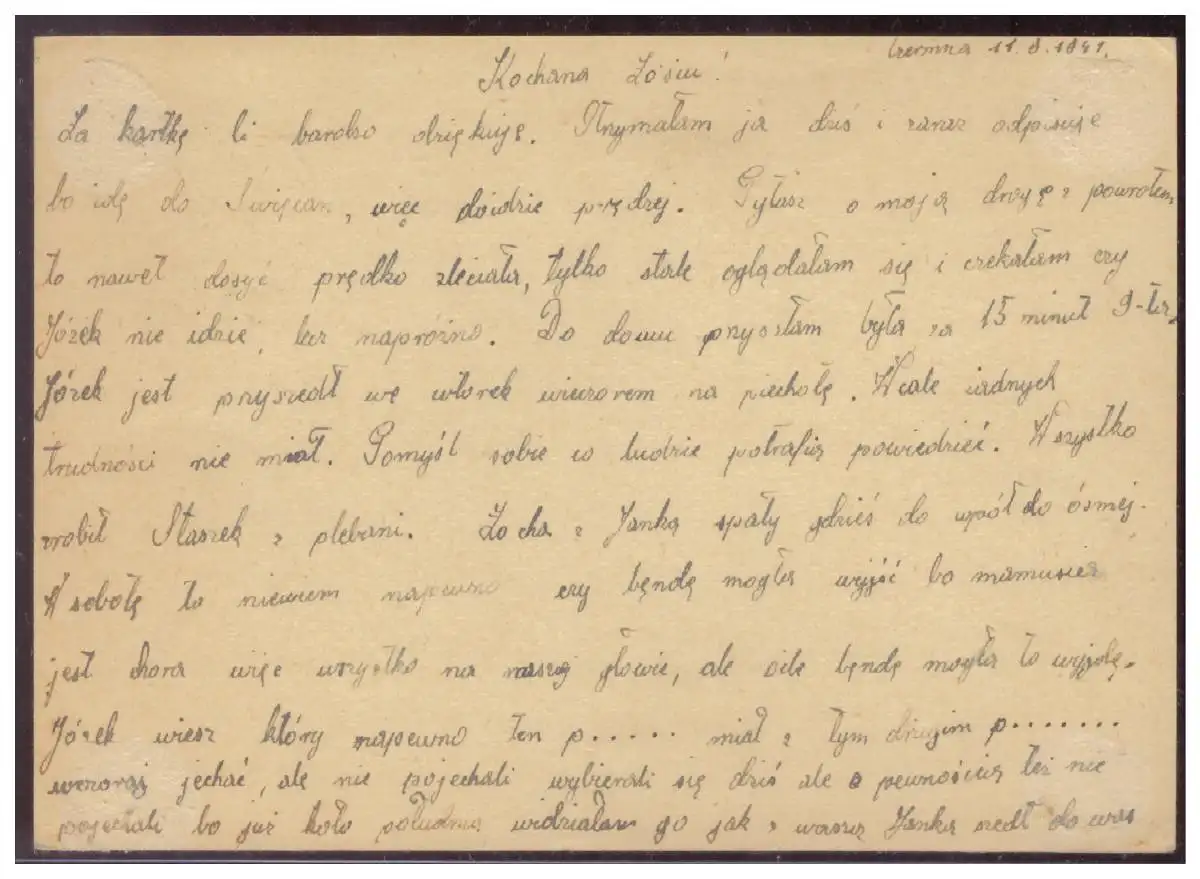 Czermna 11.8.1941.
Kochana Zosiu!
Za kartkę Ci bardzo dziękuję. Otrzymałam ja dziś i zaraz odpisuję
bo idę do Święcan, więc dojdzie prędzej. Pytasz o moją drogę z powrotem
to nawet dosyć prędko zleciała, tylko stale oglądałam się i czekałam czy
Józek nie idzie, lecz napróżno. Do domu przyszłam była za 15 minut 9-ta.
Józek jest przyszedł we wtorek wieczorem na piechotę. Wcale żadnych
trudności nie miał. Pomyśl sobie co ludzie potrafią powiedzieć. Wszystko
zrobił Staszek z plebani. Zocha z Janką spały gdzieś do wpół do ósmej.
W sobotę to niewiem napewno czy będę mogła wyjść bo mamusia
jest chora więc wszystko na naszej głowie, ale będę mogła to wyjdę.
Józek wiesz który napewno ten p..... miał z tym drugim p........
wczoraj jechać, ale nie pojechali wybierali się dziś ale z pewnością też nie
pojechali bo już koło południa widziałam go jak z waszą Janką szedł do was